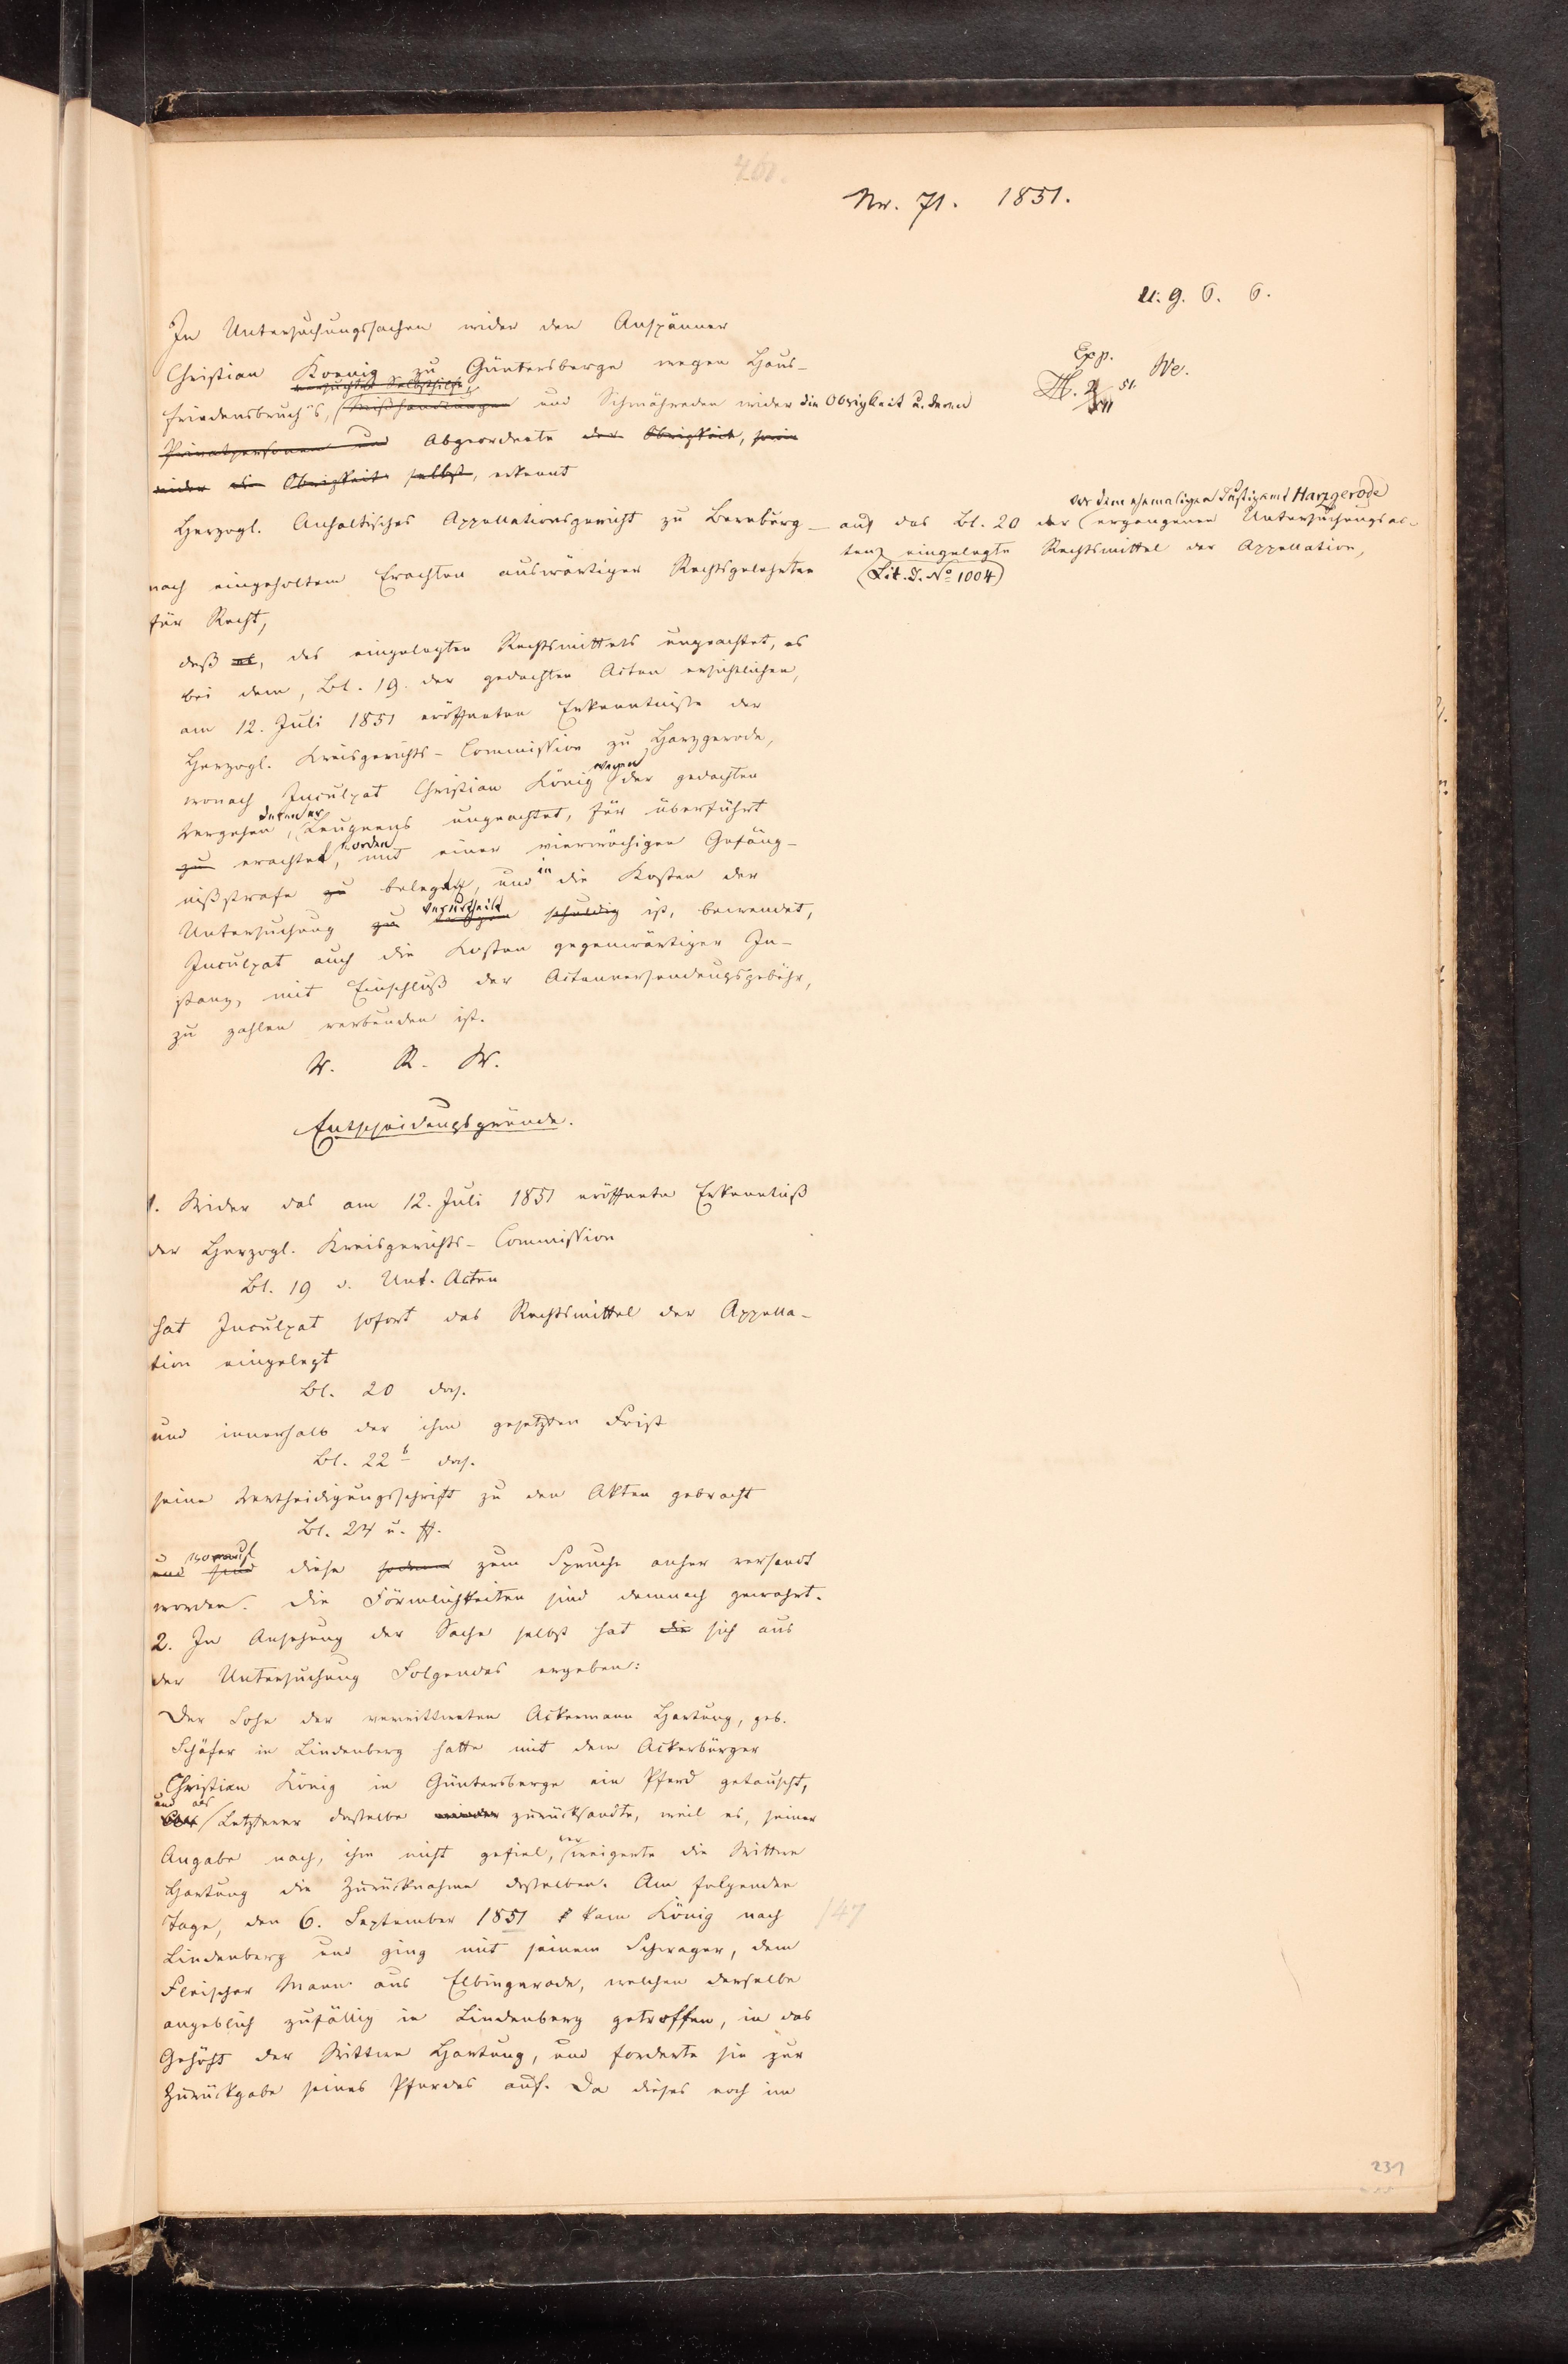 461.
Nr. 71. 1851.
U. g. O. O.
Exp. We.
In Untersuchungssachen wider den Anspänner
Christian Koenig zu Güntersberge wegen Haus-
versuchter Selbsthilfe,
friedensbruchs, Mißhandlungen und Schmähreden wider die Obrigkeit u. deren
Privatpersonen und Abgeordnete der Obrigkeit, sowie
wider die Obrigkeit selbst, erkennt
Herzogl. Anhaltisches Appellationsgericht zu Bernburg – auf das Bl. 20 der vor dem ehemaligen Justizamt Harzgerode ergangenen Untersuchungsac-
ten eingelegte Rechtsmittel der Appellation,
(Lit. J. No 1004)
nach eingeholtem Erachten auswärtiger Rechtsgelehrten
für Recht,
daß es, des eingelegten Rechtsmittels ungeachtet, es
bei dem, Bl. 19. der gedachten Acten ersichtlichen,
am 12. Juli 1851 eröffneten Erkenntnisse der
Herzogl. Kreisgerichts-Commission zu Harzgerode,
wonach Inculpat Christian König wegen der gedachten
Vergehen, deren er Leugnens ungeachtet, für überführt
zu erachtet worden, mit einer vierwöchigen Gefäng-
nißstrafe zu belegt, und in die Kosten der
Untersuchung zu verurtheilt schuldig ist, bewendet,
Inculpat auch die Kosten gegenwärtiger In-
stanz, mit Einschluß der Actenversendungsgebühr,
zu zahlen verbunden ist.
V. R. W.
Entscheidungsgründe.
1. Wider das am 12. Juli 1851 eröffnete Erkenntniß
der Herzogl. Kreisgerichts-Commission
Bl. 19 d. Unt. Acten
hat Inculpat sofort das Rechtsmittel der Appella-
tion eingelegt
Bl. 20 das.
und innerhalb der ihm gesetzten Frist
Bl. 22 b das.
seine Vertheidigungsschrift zu den Akten gebracht
Bl. 24 u. ff.
worauf
und sind diese sodann zum Spruche anher versandt
worden. Die Förmlichkeiten sind demnach gewahrt.
2. In Ansehung der Sache selbst hat die sich aus
der Untersuchung Folgendes ergeben:
Der Sohn der verwittweten Ackermann Hartung, geb.
Schäfer in Lindenberg hatte mit dem Ackerbürger
Christian König in Güntersberge ein Pferd getauscht,
und als
Letzterer dasselbe wieder zurücksandte, weil es, seiner
Angabe nach, ihm nicht gefiel, verweigerte die Wittwe
Hartung die Zurücknahme desselben. Am folgenden
Tage, den 6. September 1851 kam König nach
147
Lindenberg und ging mit seinem Schwager, dem
Fleischer Mann aus Elbingerode, welchen derselbe
angeblich zufällig in Lindenberg getroffen, in das
Gehöft der Wittwe Hartung, und forderte sie zur
Zurückgabe seines Pferdes auf. Da dieses noch im
231